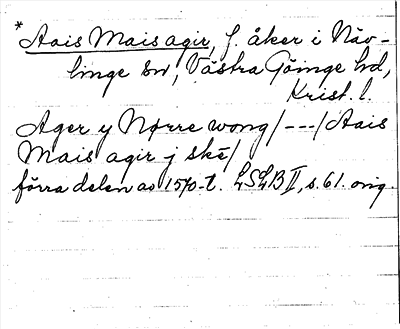 * Aais Mais agir, f. åker i Näv-
linge sn, Västra Göinge hd,
Krist. l.
Ager y Nørre wong/---/Aais
Mais agir j ske/
förra delen av 1570-t. LSLB II, s. 61. orig.